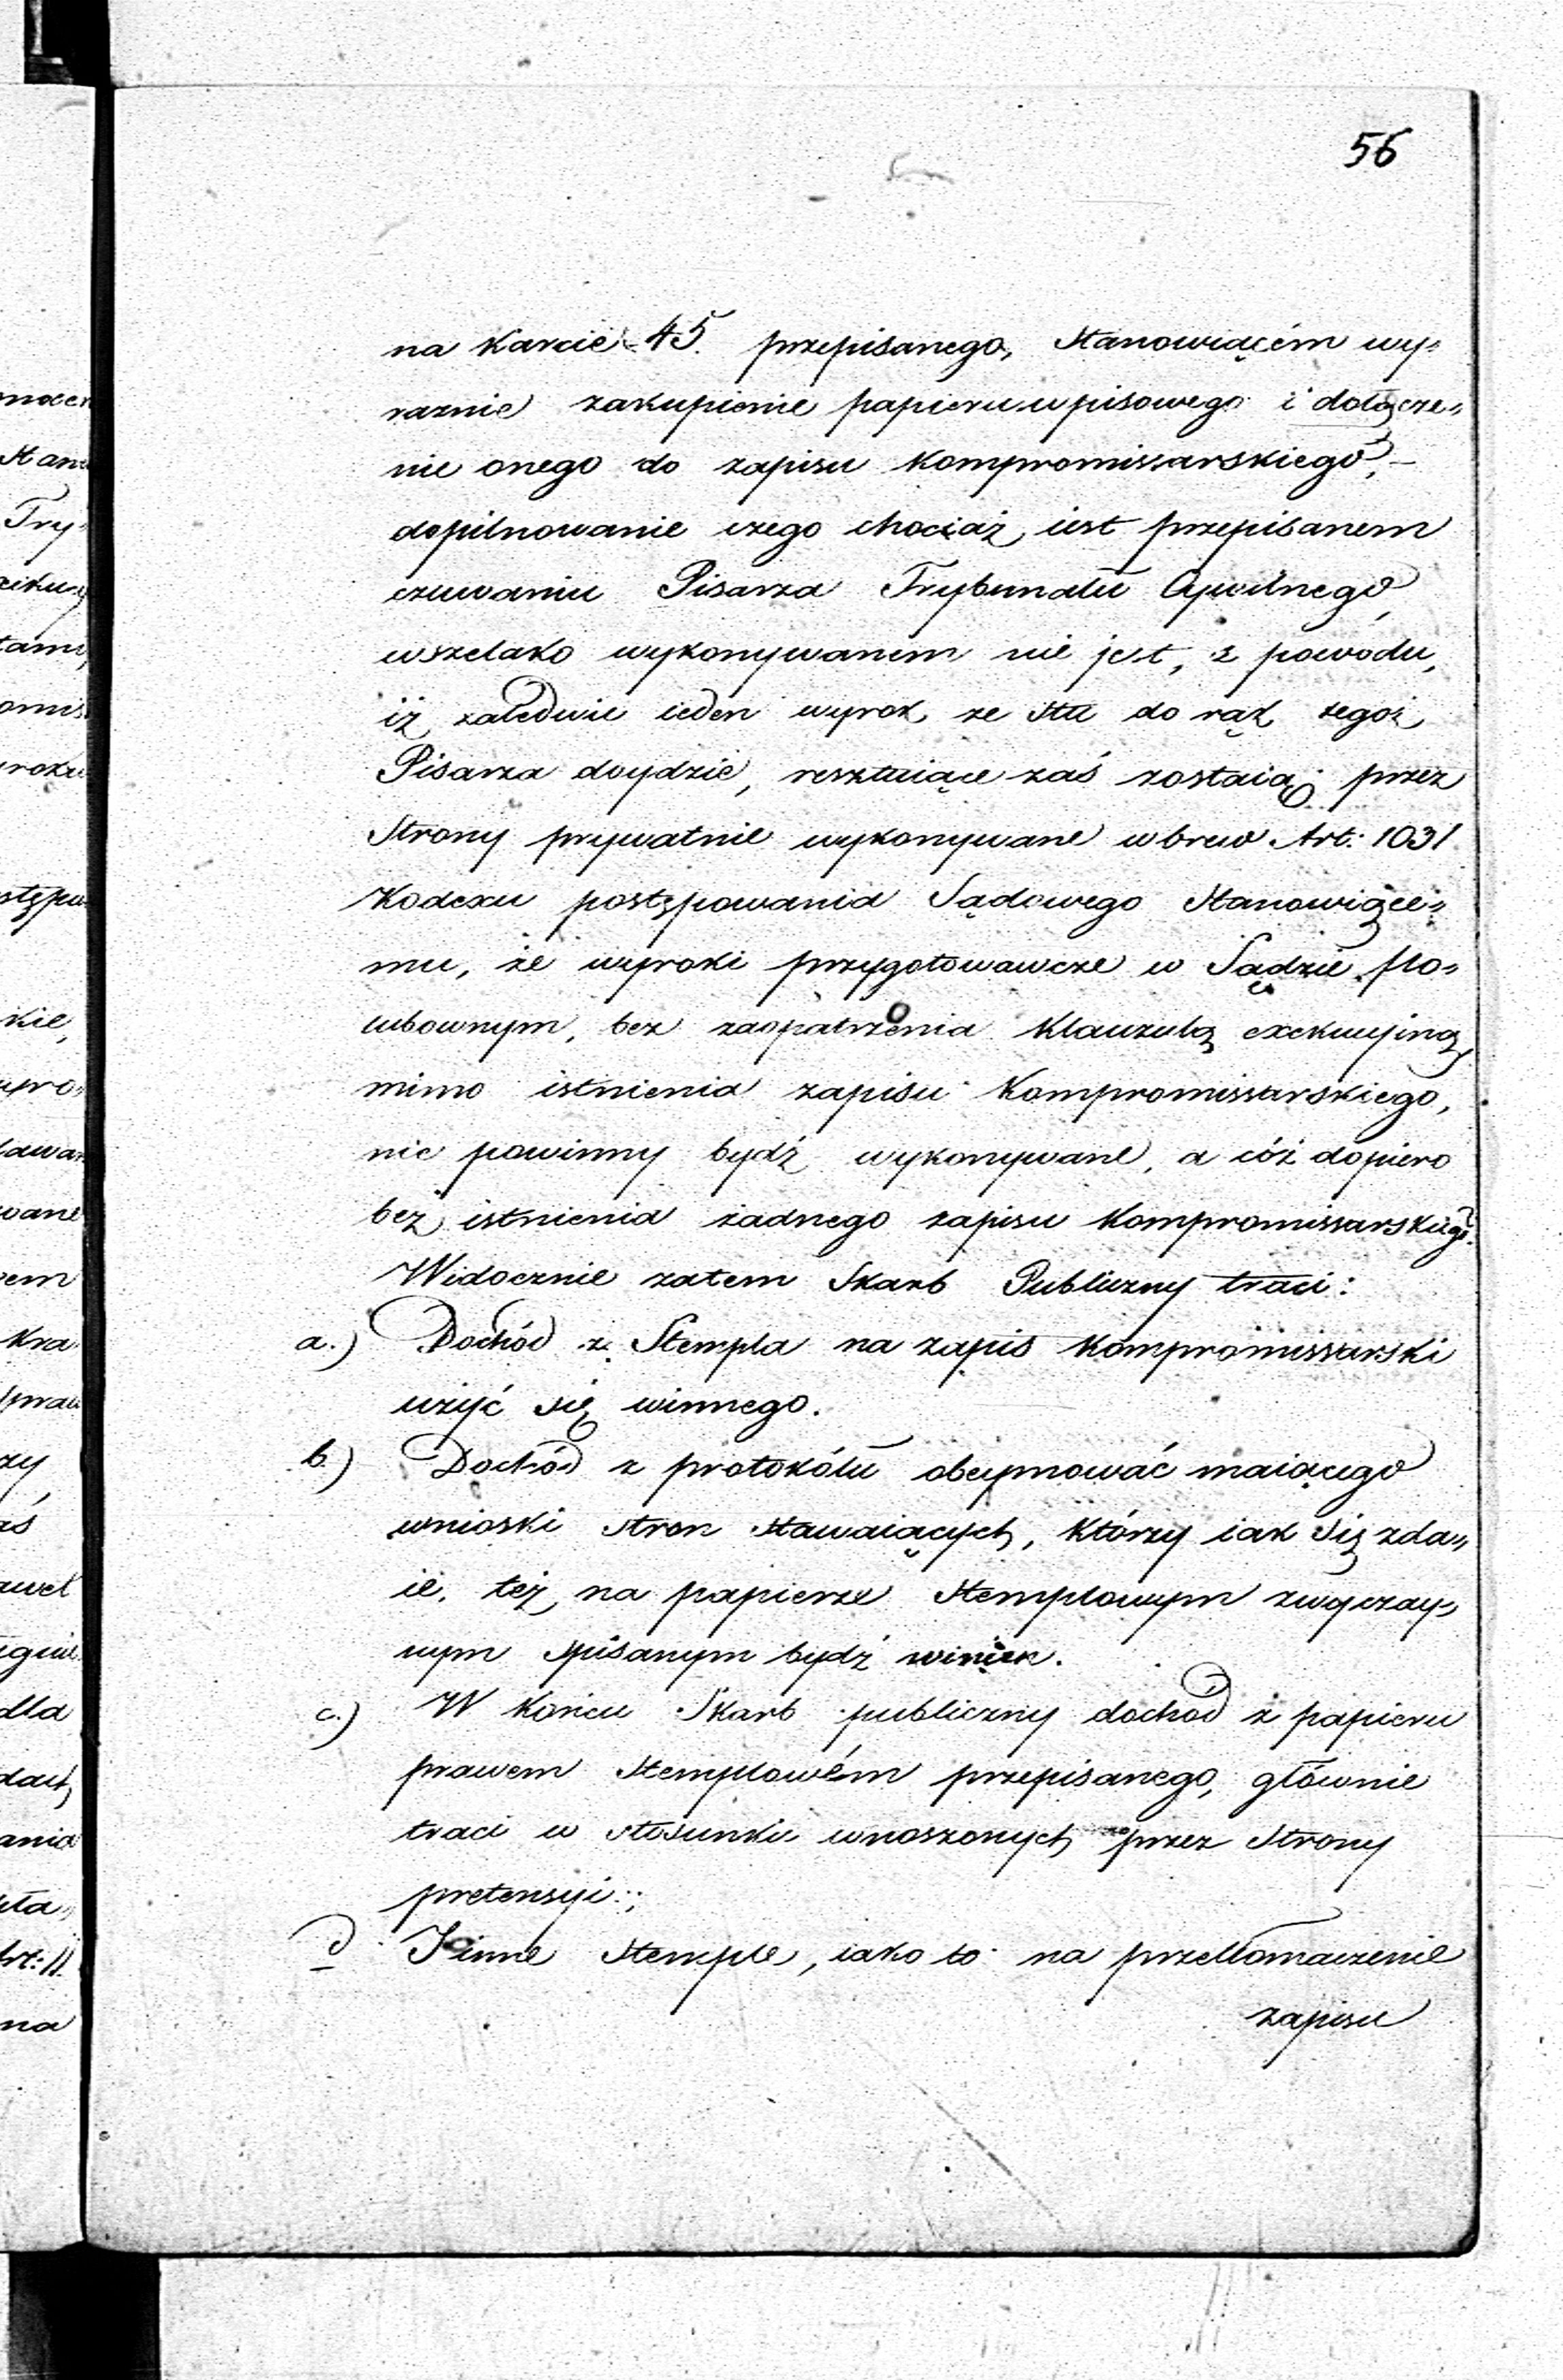 56
na karcie 45. przepisanego, stanowiącém wy„
raznie zakupienie papieru wpisowego i dołącze„
nie onego do zapisu kompromissarskiego, –
dopilnowanie czego chociaż iest przepisanem
czuwaniu Pisarza Trybunału Cywilnego,
wszelako wykonywanem nie jest, z powodu,
iż zaledwie ieden wyrok ze stu do rąk tegoż
Pisarza doydzie, resztuiące zaś zostaią przez
Strony prywatnie wykonywane wbrew Art: 1031
Kodexu postępowania Sądowego stanowiące„
mu, że wyroki przygotowawcze w Sądzie Po„
lubownym, bez zaopatrzenia klauzulą exekucyjną,
mimo istnienia zapisu kompromissarskiego,
nie powinny bydź wykonywane, a cóż dopiero
bez istnienia żadnego zapisu kompromissarskiego.
Widocznie zatem Skarb Publiczny traci:
a.) Dochód z Stempla na zapis kompromissarski
użyć się winnego.
b.) Dochód z protokółu obeymować maiącego
wnioski stron stawaiących, którzy iak się zda„
ie, też na papierze stemplowym zwyczay„
nym spisanym bydź winien.
c.) W końcu Skarb publiczny dochód z papieru
prawem stemplowém przepisanego, głównie
traci w stosunku wnoszonych przez Strony
pretensyi:;
d I inne stemple, iako to na przetłomaczenie
zapisu